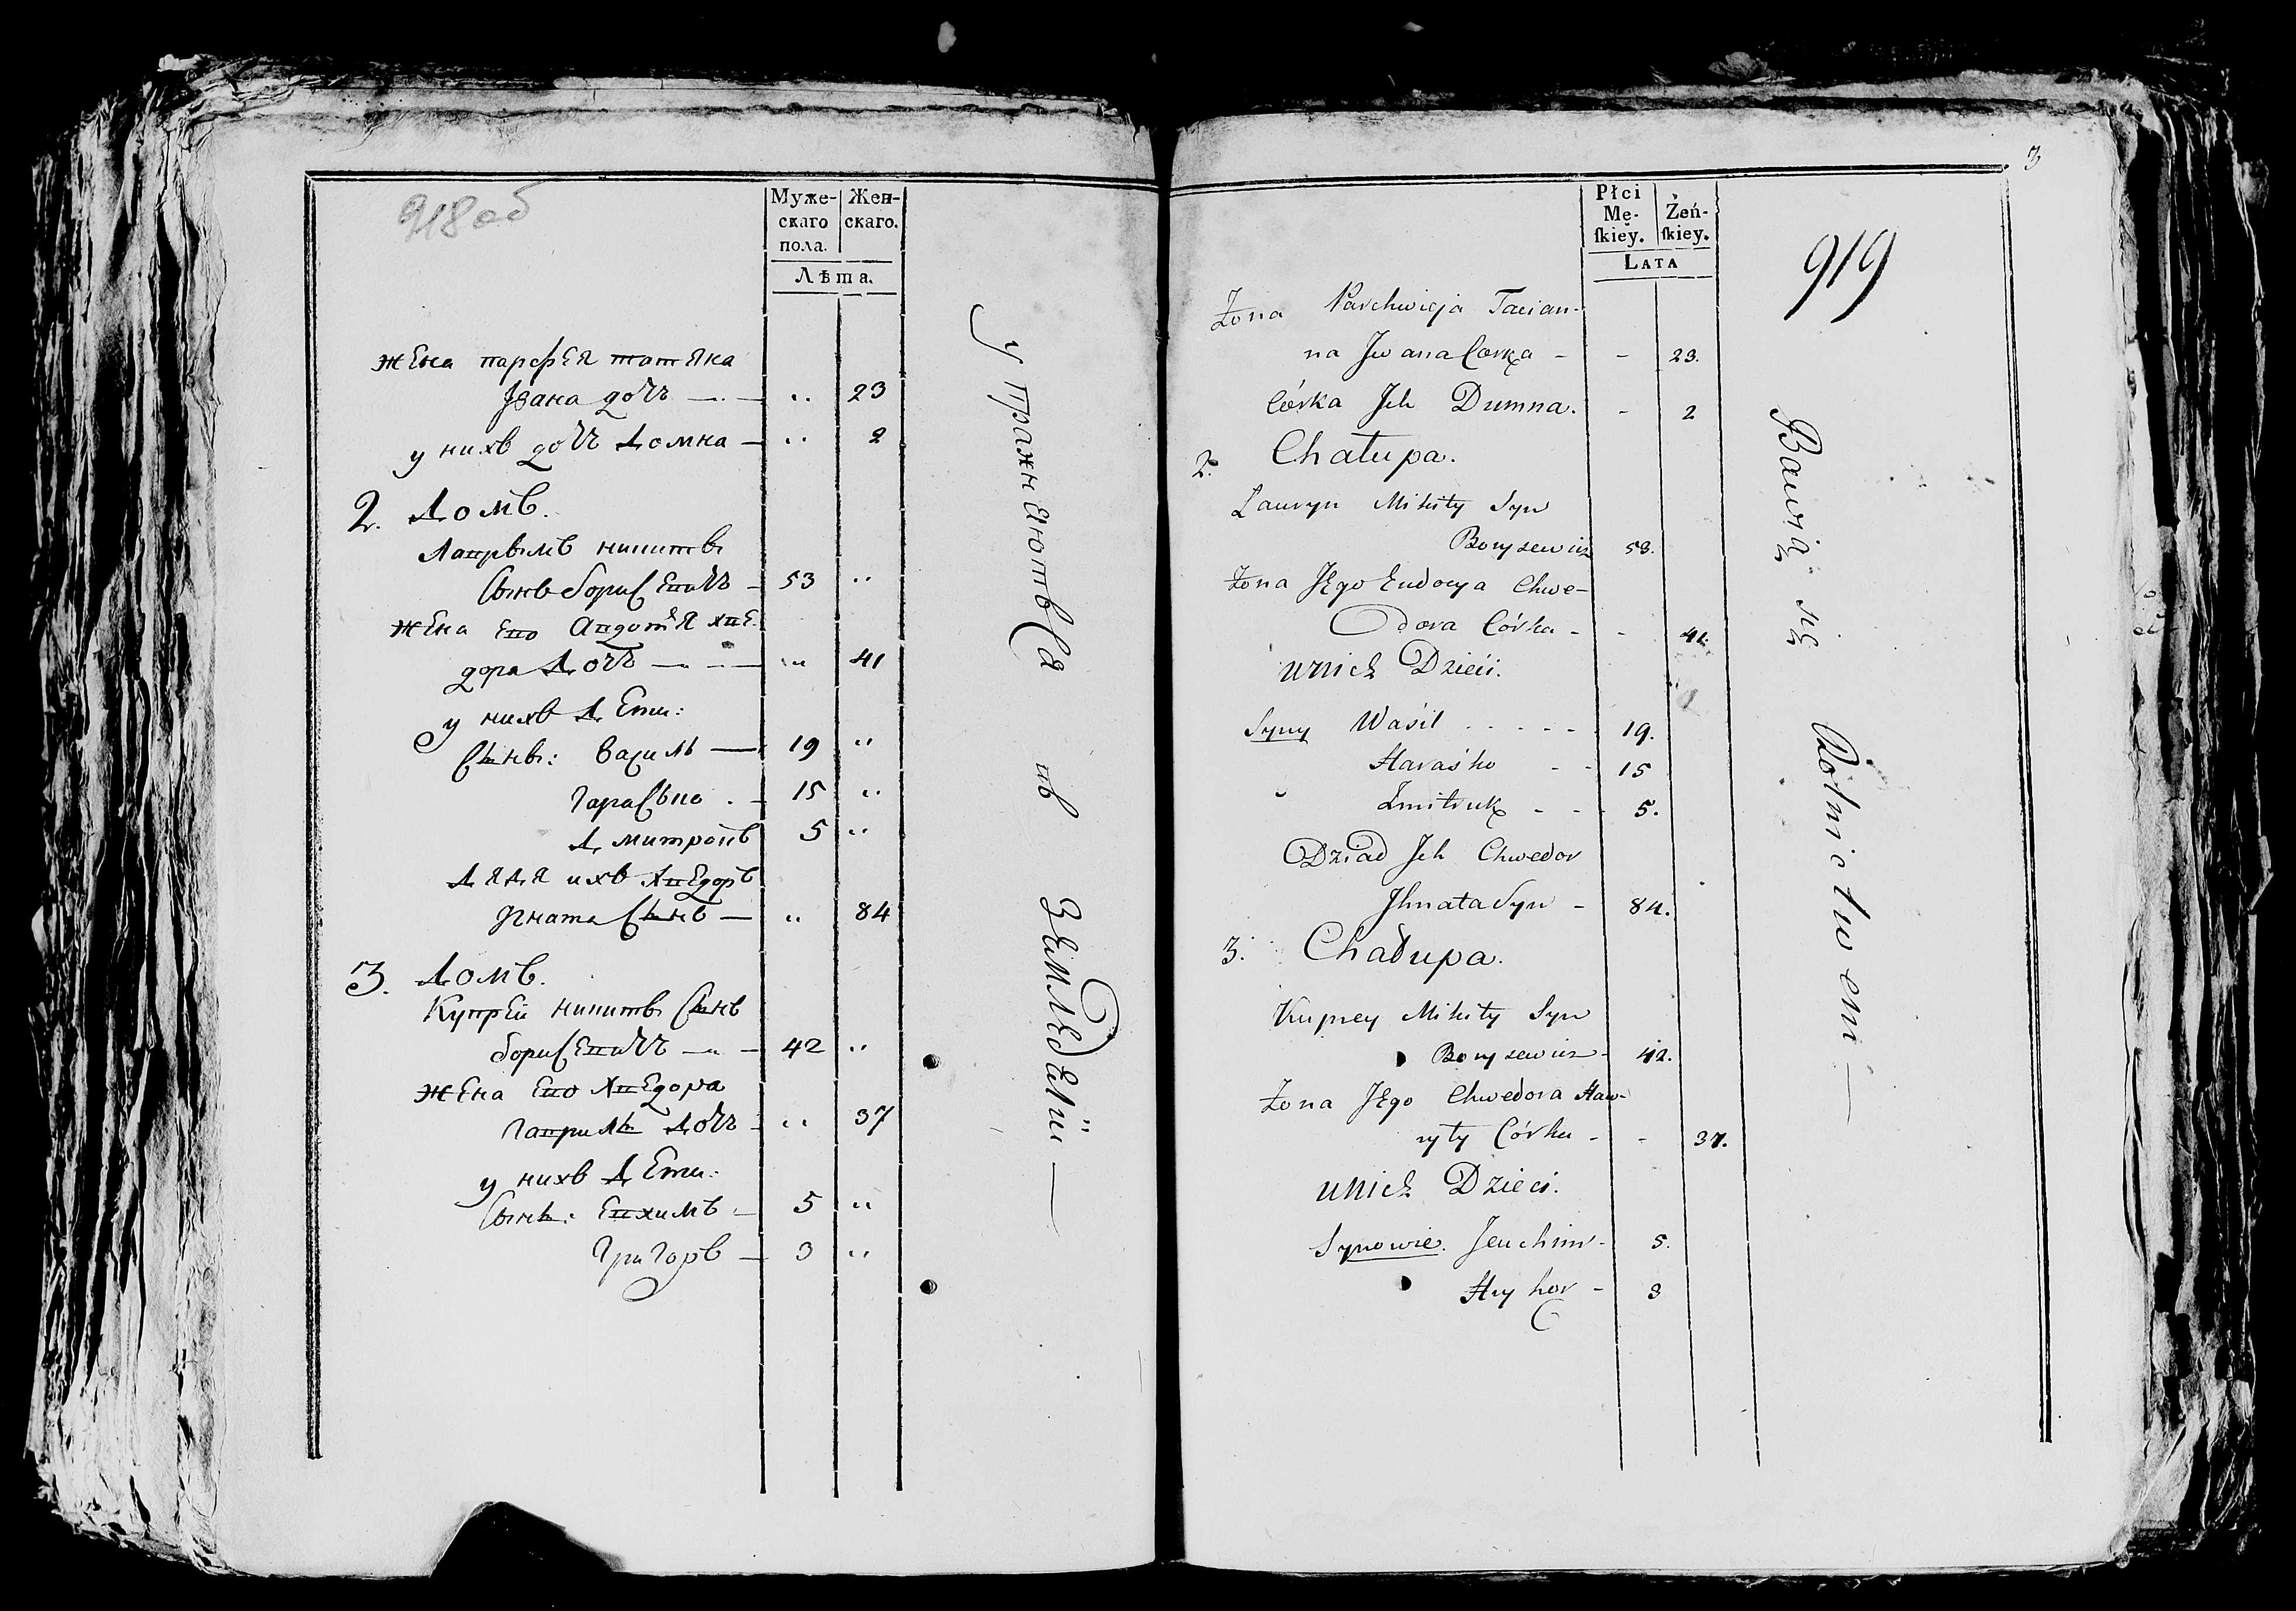 918об
Муже-
скаго
пола.
Жен-
скаго.
Лѣта.
жена парфея татяна
Jвана дочь — „ 23
у нихъ дочь Домна — „ 2
2. Домъ.
никиты
Сынъ борисевичъ — 53 „
жена ево Авдотья хве-
дора Дочь — „ 41
у нихъ Дети:
Сыны: Василь — 19 „
Гарасько — 15 „
Дмитрокъ 5 „
Дядя ихъ Хведоръ
Jгната Сынъ — „ 84
3. Домъ.
Купрей никиты Сынъ
борисевичъ — 42 „
жена ево Хведора
Гаврилы Дочь — „ 37
у нихъ Дети:
Сыны: Евхимъ — 5 „
Григоръ — 3 „
упражняютъся въ земледелїи —
3
919
Płci
Mę-
ſkiey.
Żeń-
ſkiey.
LATA
Żona Parchwieja Tacian-
na Jwana Corka - - 23.
Córka Jch Dumna. - 2
2. Chałupa.
Lauryn Mikity Syn
Borysewicz 53.
Żona JEgo Eudocya Chwe-
dora Córka - - 41.
u nich Dzieci.
Syny Waśil - - - - 19.
Haraśko - - 15
Zmitruk - - 5.
Dziad Jch Chwedor
Jhnata Syn - 84.
3. Chałupa.
Kuprey Mikity Syn
Borysewicz - 42.
Żona JEgo Chwedora Haw-
ryły Córka - - 37.
u nich Dzieci.
Synowie. Jeuchim - 5.
Hryhor - 3
Bawią się Rolnictwem —